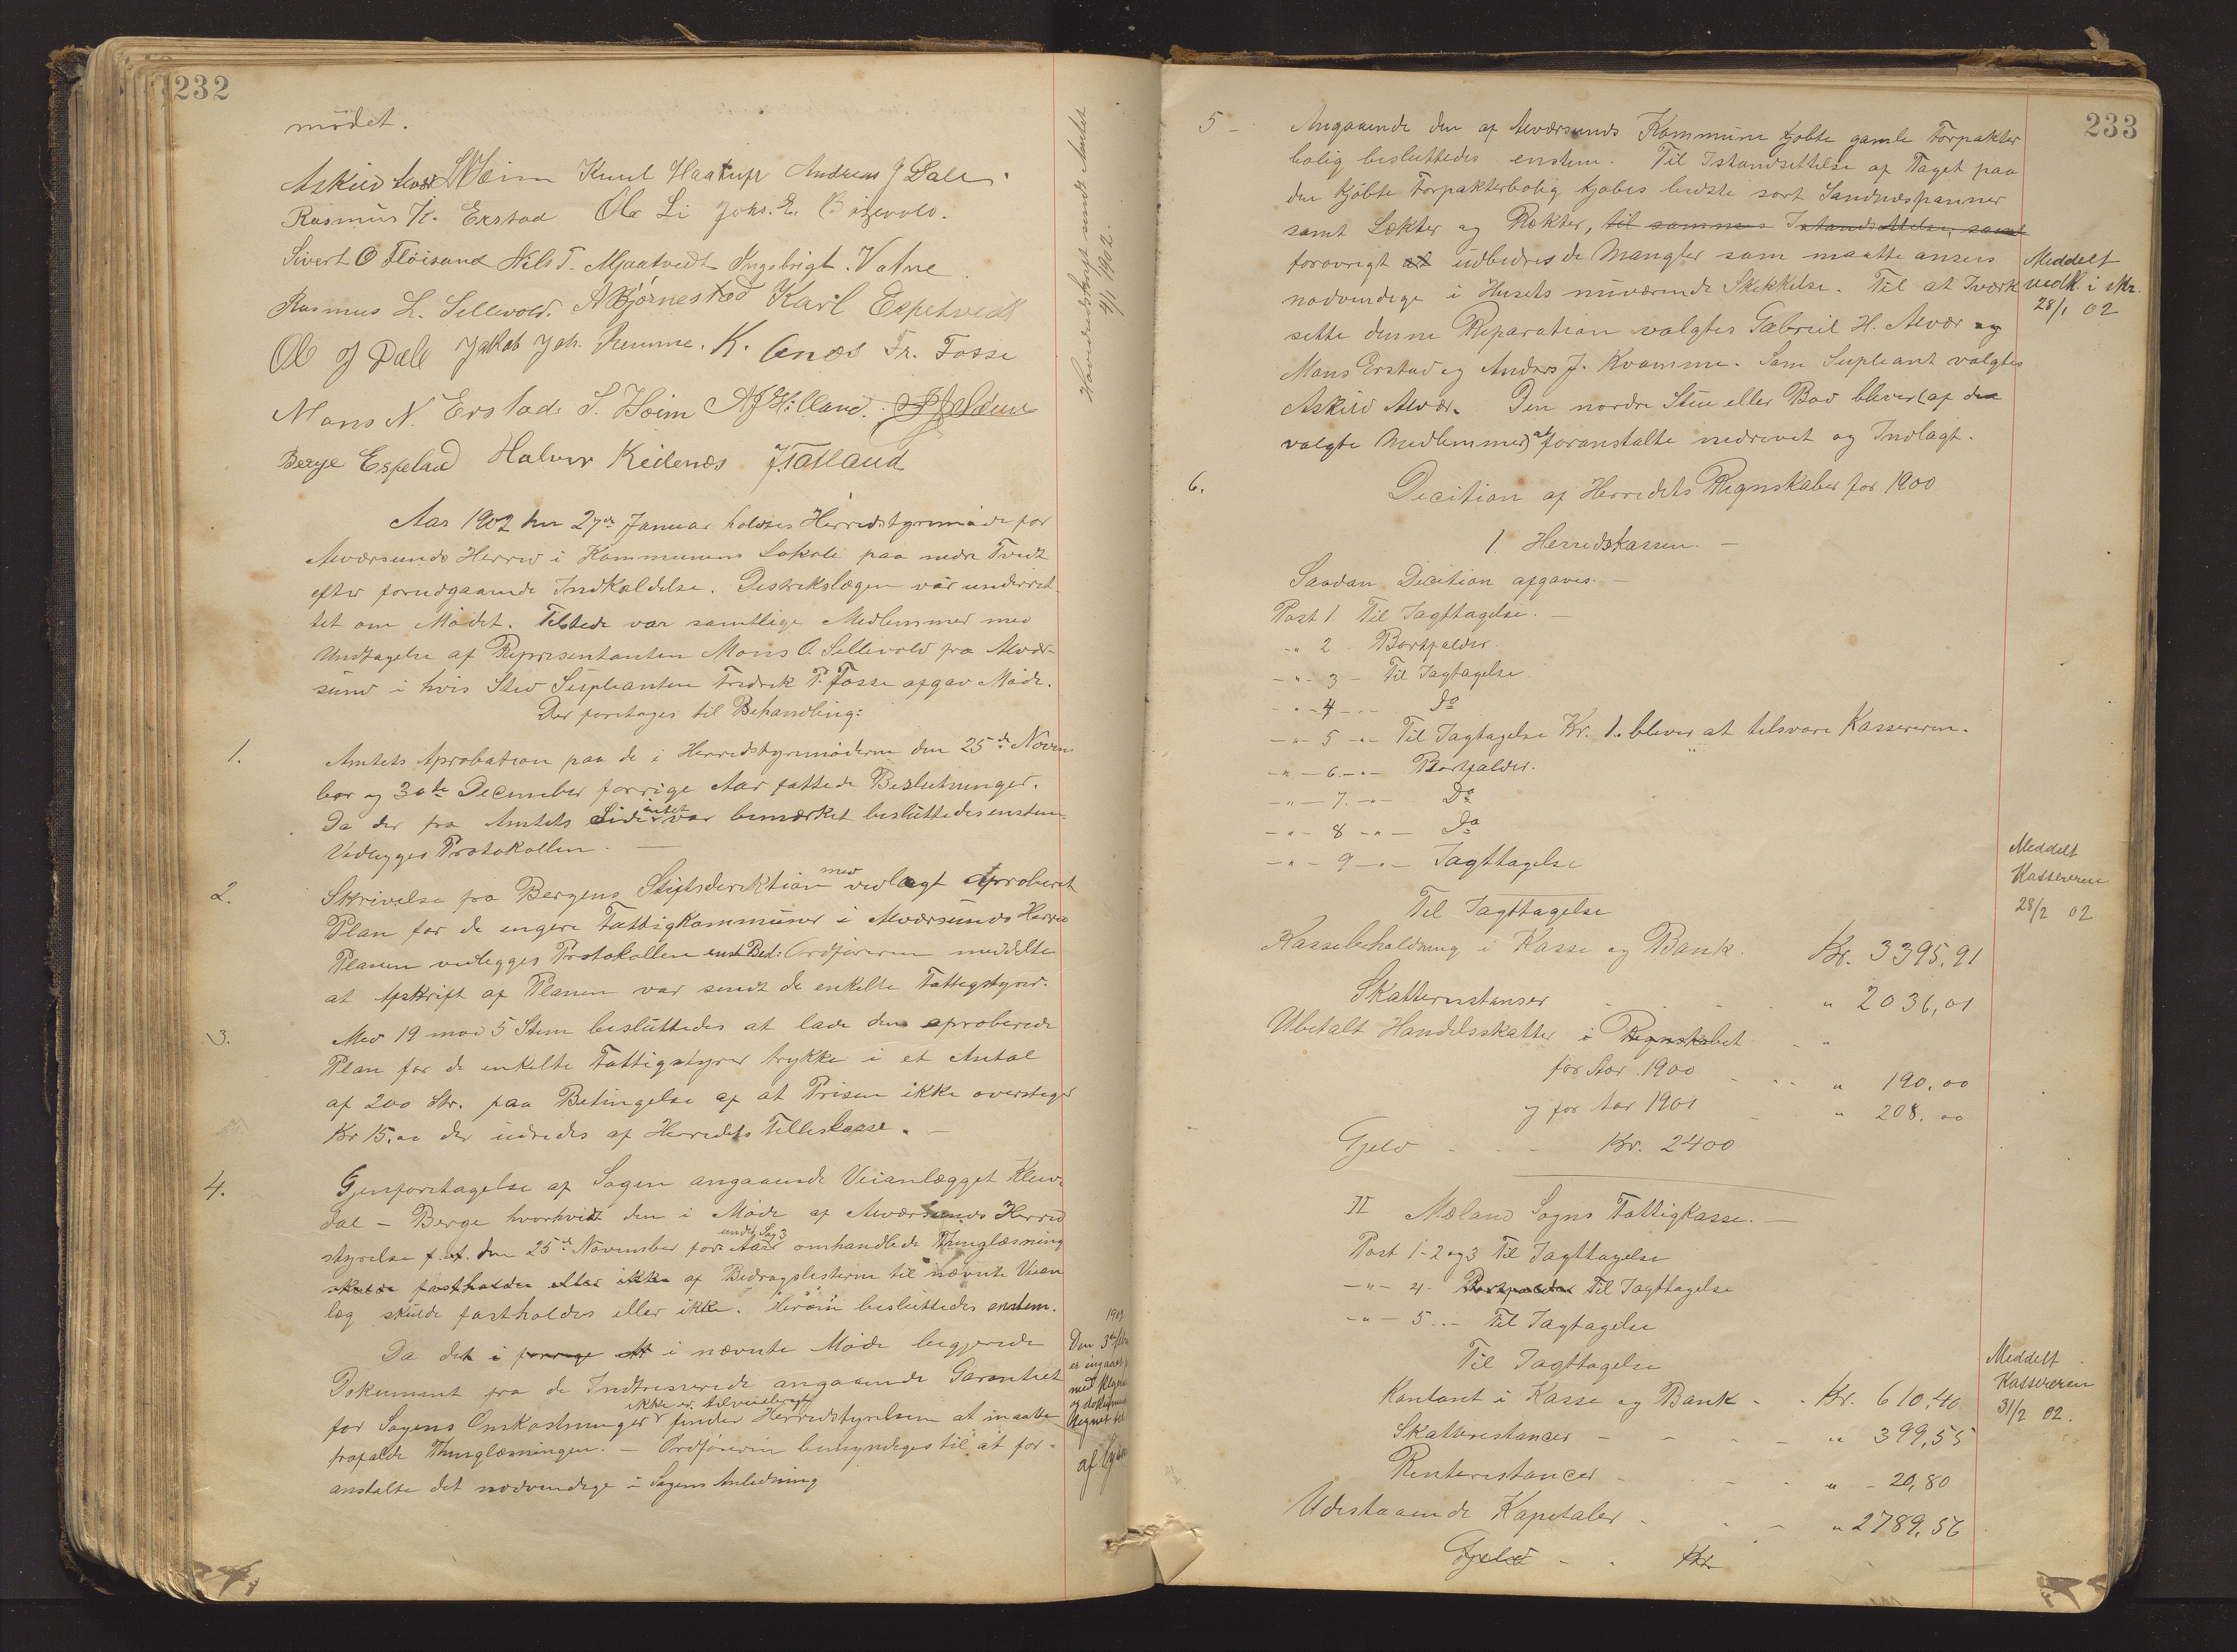 232
mödet.
Askild Alvær Heim Knut Haatuft Andreas J Dale.
Rasmus K. Erstad Ole Li Johs. E. Bögevold.
Sivert O Flöisand Nils T. Mjaatvedt Ingebrigt. Vatne
Rasmus L. Sellevold. A Bjørnestad Karl Espetvedt
Ole J Dale Jakob Joh. Fr. Fosse
Mons N. Erstad S. Heim
Berge Espeland Halvor Keilenæs J. Tatland
Havredsskrift sendt Amtet
4/1 1902.
Aar 1902 den 27de Januar holdtes Herredstyremöde for
Alværsunds Herred i Kommunens Lokale paa nedre Tvedt
efter forudgaaende Indkaldelse. Destrikslægen var underret-
tet om Mödet. Tilstede var samtlige Medlemmer med
Undtagelse af Representanten Mons O. Sellevold fra Alvær-
sund i hvis Sted Supleanten Fredrek P. Fosse afgav Möde.
Der foretages til Behandling:
1. Amtets Aprobation paa de i Herredstyremöderne den 25de Novem
ber og 30te December forrige Aar fattede Beslutninger.
Da der fra Amtets Side intet var bemærket besluttedes enstem-
Vedlegges Protokollen. —
2. Skrivelse fra Bergens Stiftsderektion med vedlagt Aproberet
Plan for de engere Fattigkommuner i Alværsunds Herred
Planen vedlegges Protokollen enst. Bed: Ordföreren meddelte
at Afskrift af Planen var sendt de enkelte Fattigstyrer.
3. Med 19 mod 5 Stem besluttedes at lade den aproberede
Plan for de enkelte Fattigstyrer trykke i et Antal
af 200 Str. paa Betingelse af at Prisen ikke overstiger
Kr 15.00 der udredes af Herredets Felleskasse. —
4. Gjenforetagelse af Sagen angaaende Veianlægget Kleiv-
dal - Berge hvorhvidt den i Möde af Alværsunds Herred
styrelse f. A. den 25de November forr Aar under Sag 3 omhandlede Thinglæsning
skulde fastholdes eller ikke af Bedragslisterne til nævnte Veian
læg skulde fastholdes eller ikke. Herom besluttedes enstem.
Da det i forrige i nævnte Möde begjerede
Dokument fra de Indtreserede angaaende Garantiet
for Sagens Omkostninger ikke er tilveiebragt finder Herredstyrelsen at maatte
frafalde Thinglæsningen. — Ordföreren bemyndiges til at for-
anstalte det nödvendige i Sagens Anledning
1902
Den 3de
er ingaaet
med
og
tegnet til
233
5 - Angaaende den af Alværsunds Kommune kjöbte gamle Forpakter
bolig besluttedes enstem. Til Istandsettelse af Taget paa
den kjöbte Forpakterbolig kjöbes bedste sort Sandnæspanner
samt Lækter og Rækter, til sammes Istandsettelse, samt
forövrigt at udbedres de Mangler som maatte ansees
nödvendige i Husets nuværende Skikkelse. Til at Iværk
sette denne Reparation valgtes Gabriel H. Alvær og
Mons Erstad og Anders J. Kvamme. Som Supleant valgtes
Askild Alvær. Den nordre Stue eller Bod bliver (af de
valgte Medlemmer) at foranstalte nedrevet og Indlagt.
Meddelt
vedk. i skr.
28/1 02
6. Decition af Herredets Regnskaber for 1900
1 Herredskassen. —
Saadan Decition afgaves. —
Post 1. Til Iagttagelse. —
-"- 2 - Bortfalder.
-"- 3 - Til Iagtagelse.
-"- 4 -"- Do
-"- 5 -"- Til Iagtagelse Kr. 1.. bliver at tilsvare Kassereren.
-"- 6. -"- Bortfalder.
-"- 7. -"- Do
-"- 8 -"- Do
-"- 9 -"- Iagttagelse
Til Iagttagelse
Kassebeholdning i Kasse og Bank. Kr. 3395,91
Skatterestanser " 2036,01
Ubetalt Handelsskatter i Regnskabet
for Aar 1900 " 190,00
og for Aar 1901 " 208,00
Gjeld - - - Kr. 2400
Meddelt
Kassereren
28/2 02
II Mæland Sogns Fattigkasse. —
Post 1-2 og 3 Til Iagttagelse
-"- 4 - Bortfalder Til Iagttagelse
-"- 5 -"- Til Iagtagelse
Til Iagttagelse
Kontant i Kasse og Bank - - Kr. 610,40
Skatterestancer - - - - " 399,55
Renterestancer - - - " - 20,80
Udestaaende Kapetaler - - - " 2789,56
Gjeld - - Kr
Meddelt
Kassereren
31/2 02.